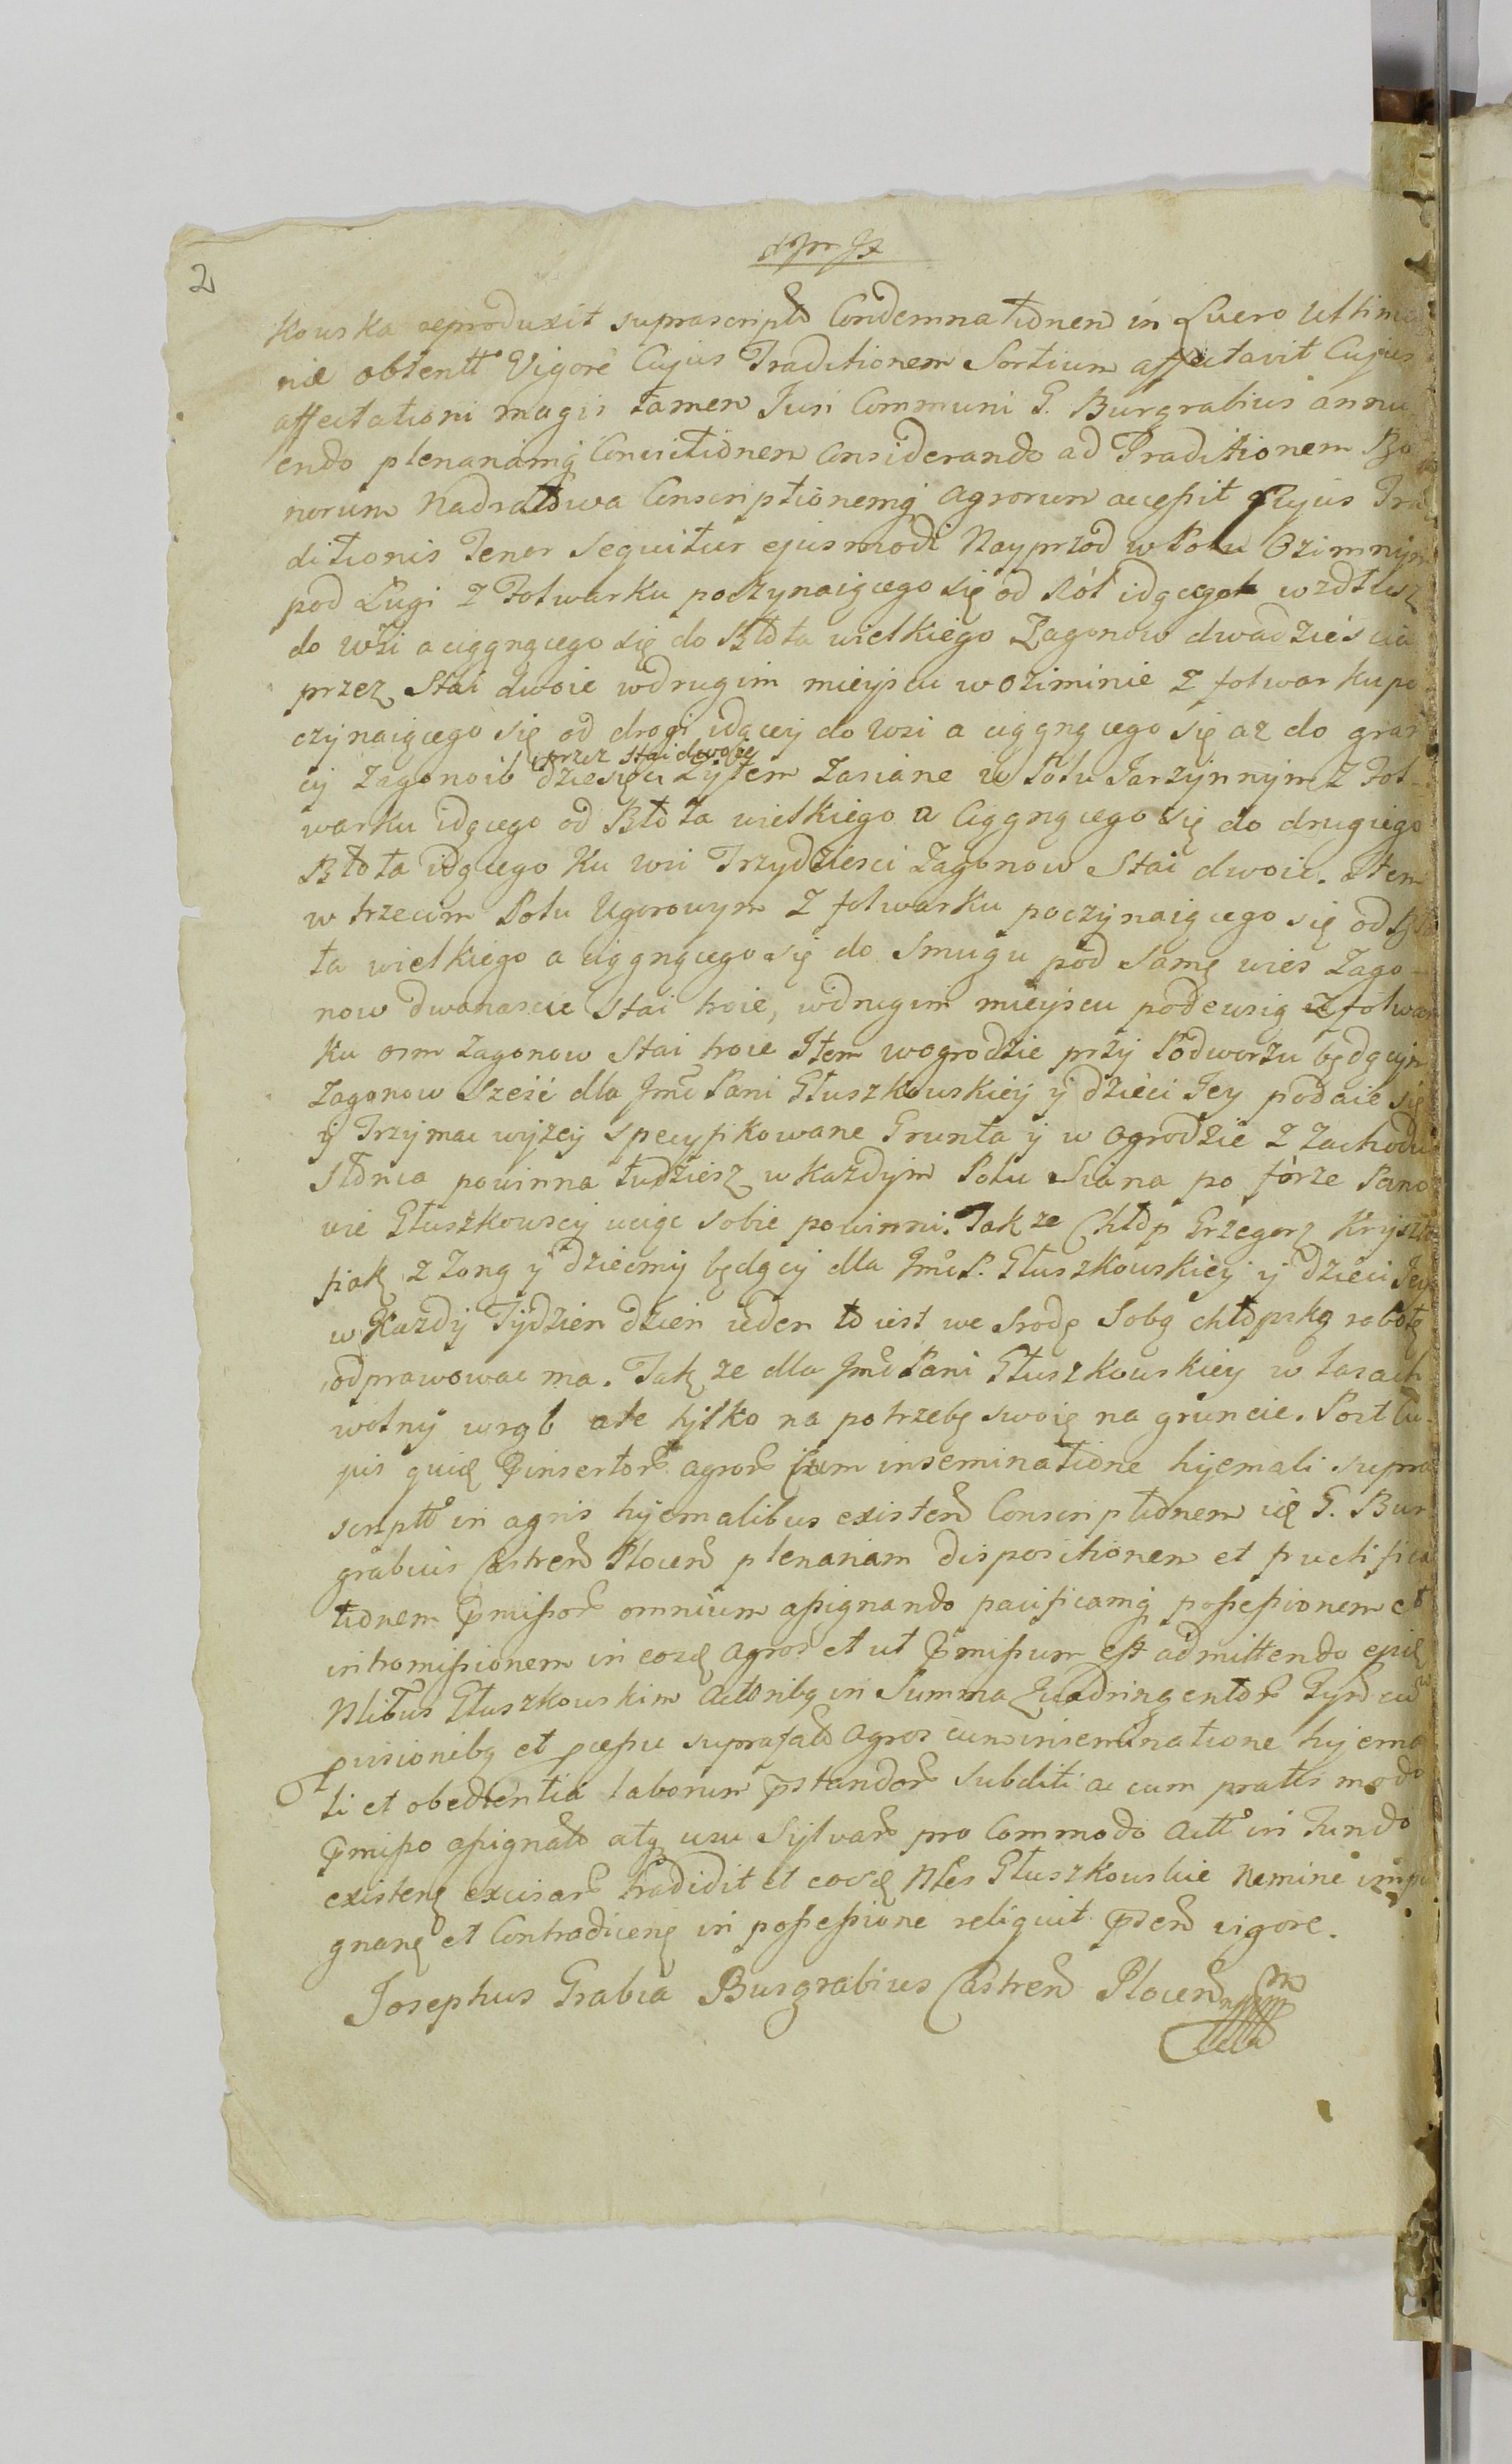 2
kouska reproduxit suprascriptã Condemnationem in Luero Ultima
nie obtentã Vigore Cujus Traditionem Sortium affectavit Cujus
affectationi magis tamen Juri Communi G. Burgrabius annu
endo plenariamq Convictionem Considerando ad Traditionem Bo
norum Nadratowa Conscriptionemq Agrorum accessit Cujus Tra
ditionis Tenor Sequitur ejusmodi Nayprzod w Polu Ozimnym
pod Ługi z Folwarku poczynaiącego się od Ról idącego wzdłusz
do wsi a ciągnącego się do Błota wielkiego Zagonow dwadzieścia
przez Stai dwoie w drugim mieyscu w oziminie z folwarku po
czynaiącego się od drogi idącey do wsi a ciągnącego się az do gran
cy Zagonow dziesięci przez Stai dwoie Zytem Zasiane w Polu Jarzynnym z Fol-
warku idącego od Błota wielkiego a Ciągnącego się do drugiego
Błota idącego ku wsi Trzydziesci Zagonow Stai dwoie. Item
w trzecim Polu Ugorowym z folwarku poczynaiącego się od Bło
ta wielkiego a ciągnącego się do Smugu pod Samę wies Zago-
now dwanascie Stai troie, w drugim mieyscu pode wsią z folwar
ku osm zagonow Stai troie Item w ogrodzie przy Podworzu będącym
Zagonow Sześć dla Jmć Pani Głuszkowskiey y dzieci Jey podaie się
y Trzymac wyzey specyfikowane Grunta y w Ogrodzie z Zachodu
Słonca powinna tudziesz w kazdym Polu Siana po forze Pano
wie Głuszkowscy uciąc sobie powinni. Takze Chłop Grzegorz Kryszto
piak z Zoną y dziecmy będący dla Jmć P. Głuszkowskiey y dzieci Jey
w Kazdy Tydzien dzien ieden to iest we Srodę Sobą chłopską robotę
odprawowac ma. Tak ze dla Jmć Pani Głuszkowskiey w lasach
wolny wrąb ale tylko na potrzebę swoię na gruncie. Post Cu-
jus quid insertor agror cum inseminatione hyemali supra
script in agris hyemalibus existen Conscriptionem id G. Bur
grabius Castren Plocen plenariam dispositionem et fructifica
tionem pmissor omnium assignando pacificamq possessionem et
intromissionem in eosd Agros et ut pmissum est admittendo
Nlibus Głuszkowskim Actoribq in Summa Quadringentor
provisionibq et suprafat Agros cum inseminatione hyema
li et obedientia laborum pstandor Subditi ac cum pratis modo
pmisso assignato atq usu Sylvar pro Commodo Act in Fundo
existen excisar tradidit et eosd Nles Głuszkowskie Nemine impu
gnan et Contradicen in possessione reliquit psen vigore.
Josephus Grabia Burgrabius Castren Plocen mp